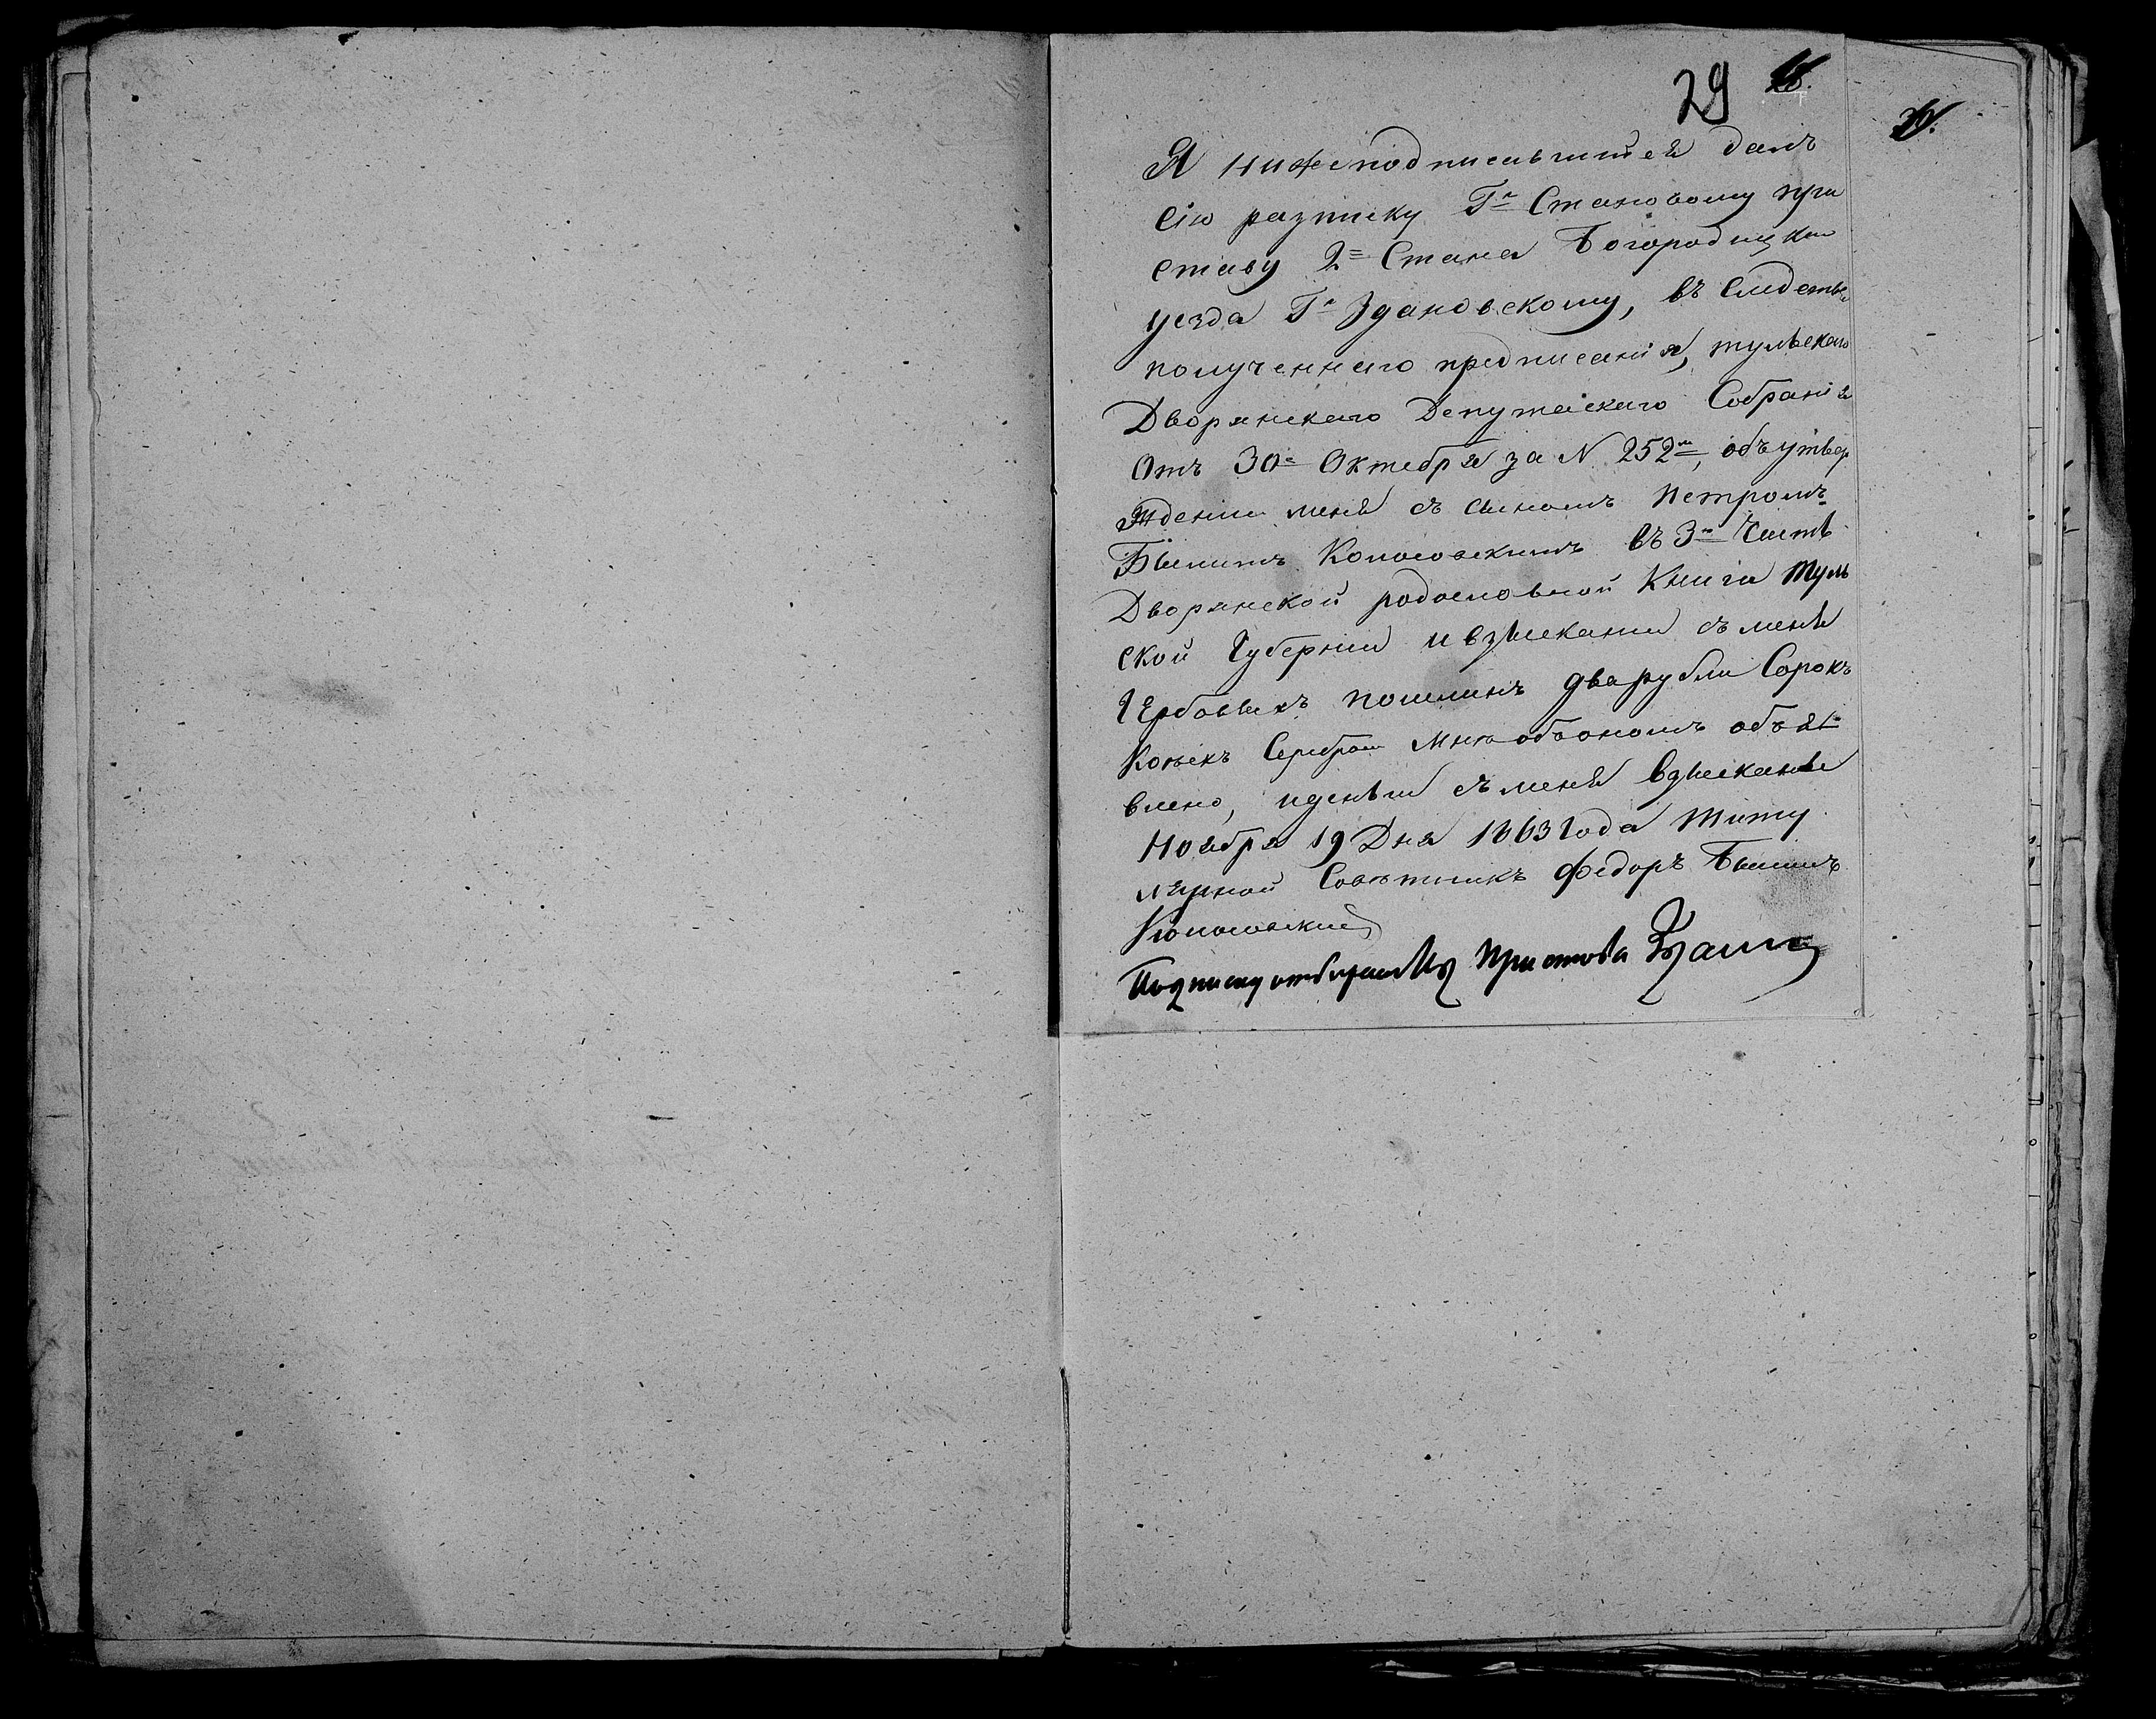 29
Я нижеподписавшійся далъ
сію разписку Г<sup>ну</sup> Становому при
ставу 2 Стана Богородицкаго
уезда Г<sup>ну</sup> Здановскому, въ следствіе
полученнаго предписанія, тульскаго
Дворянскаго Депутатскаго Собранія
Отъ 30 Октебря за N 252<sup>м</sup>, объ утвер
ждении меня съ сыномъ Петромъ
въ 3<sup>й</sup> Части
Дворянской родословной Книги Туль
ской Губернии и взыскании съ меня
Гербовыхъ пошлинъ два рубли Сорокъ
Копѣекъ Серебромъ Мнѣ объ ономъ объяв
влено, и деньги съ меня взысканы
Ноября 19 Дня 1863 Года Титу
лярной Совѣтникъ Федоръ
Подписку отбиралъ Пристава